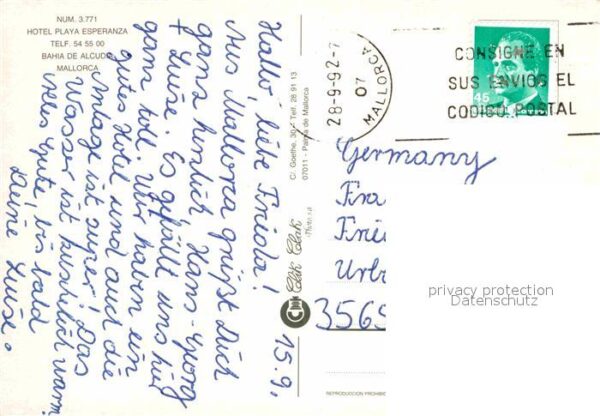 NUM. 3.771
HOTEL PLAYA ESPERANZA
TELF. 54 55 00
BAHIA DE ALCUDIA
MALLORCA
15.9.
Hallo, liebe Frieda!
Aus Mallorca grüßt Dich
ganz herzlich Hans-Georg
+ Luise. Es gefällt uns hier
ganz toll. Wir haben ein
gutes Hotel und auch die
Anlage ist super! Das
Wasser ist herrlich warm.
Alles Gute, bis bald
Deine Luise.
C/. Goethe, 30 - Telf. 28 91 13
07011 - Palma de Mallorca
Clik Clak
REPRODUCCION PROHIBID
28-9-92-7
07
MALLORCA
CONSIGNE EN
SUS ENVIOS EL
CODIGO POSTAL
45
Germany
Fra
Frie
Urb
3569
privacy protection
Datenschutz